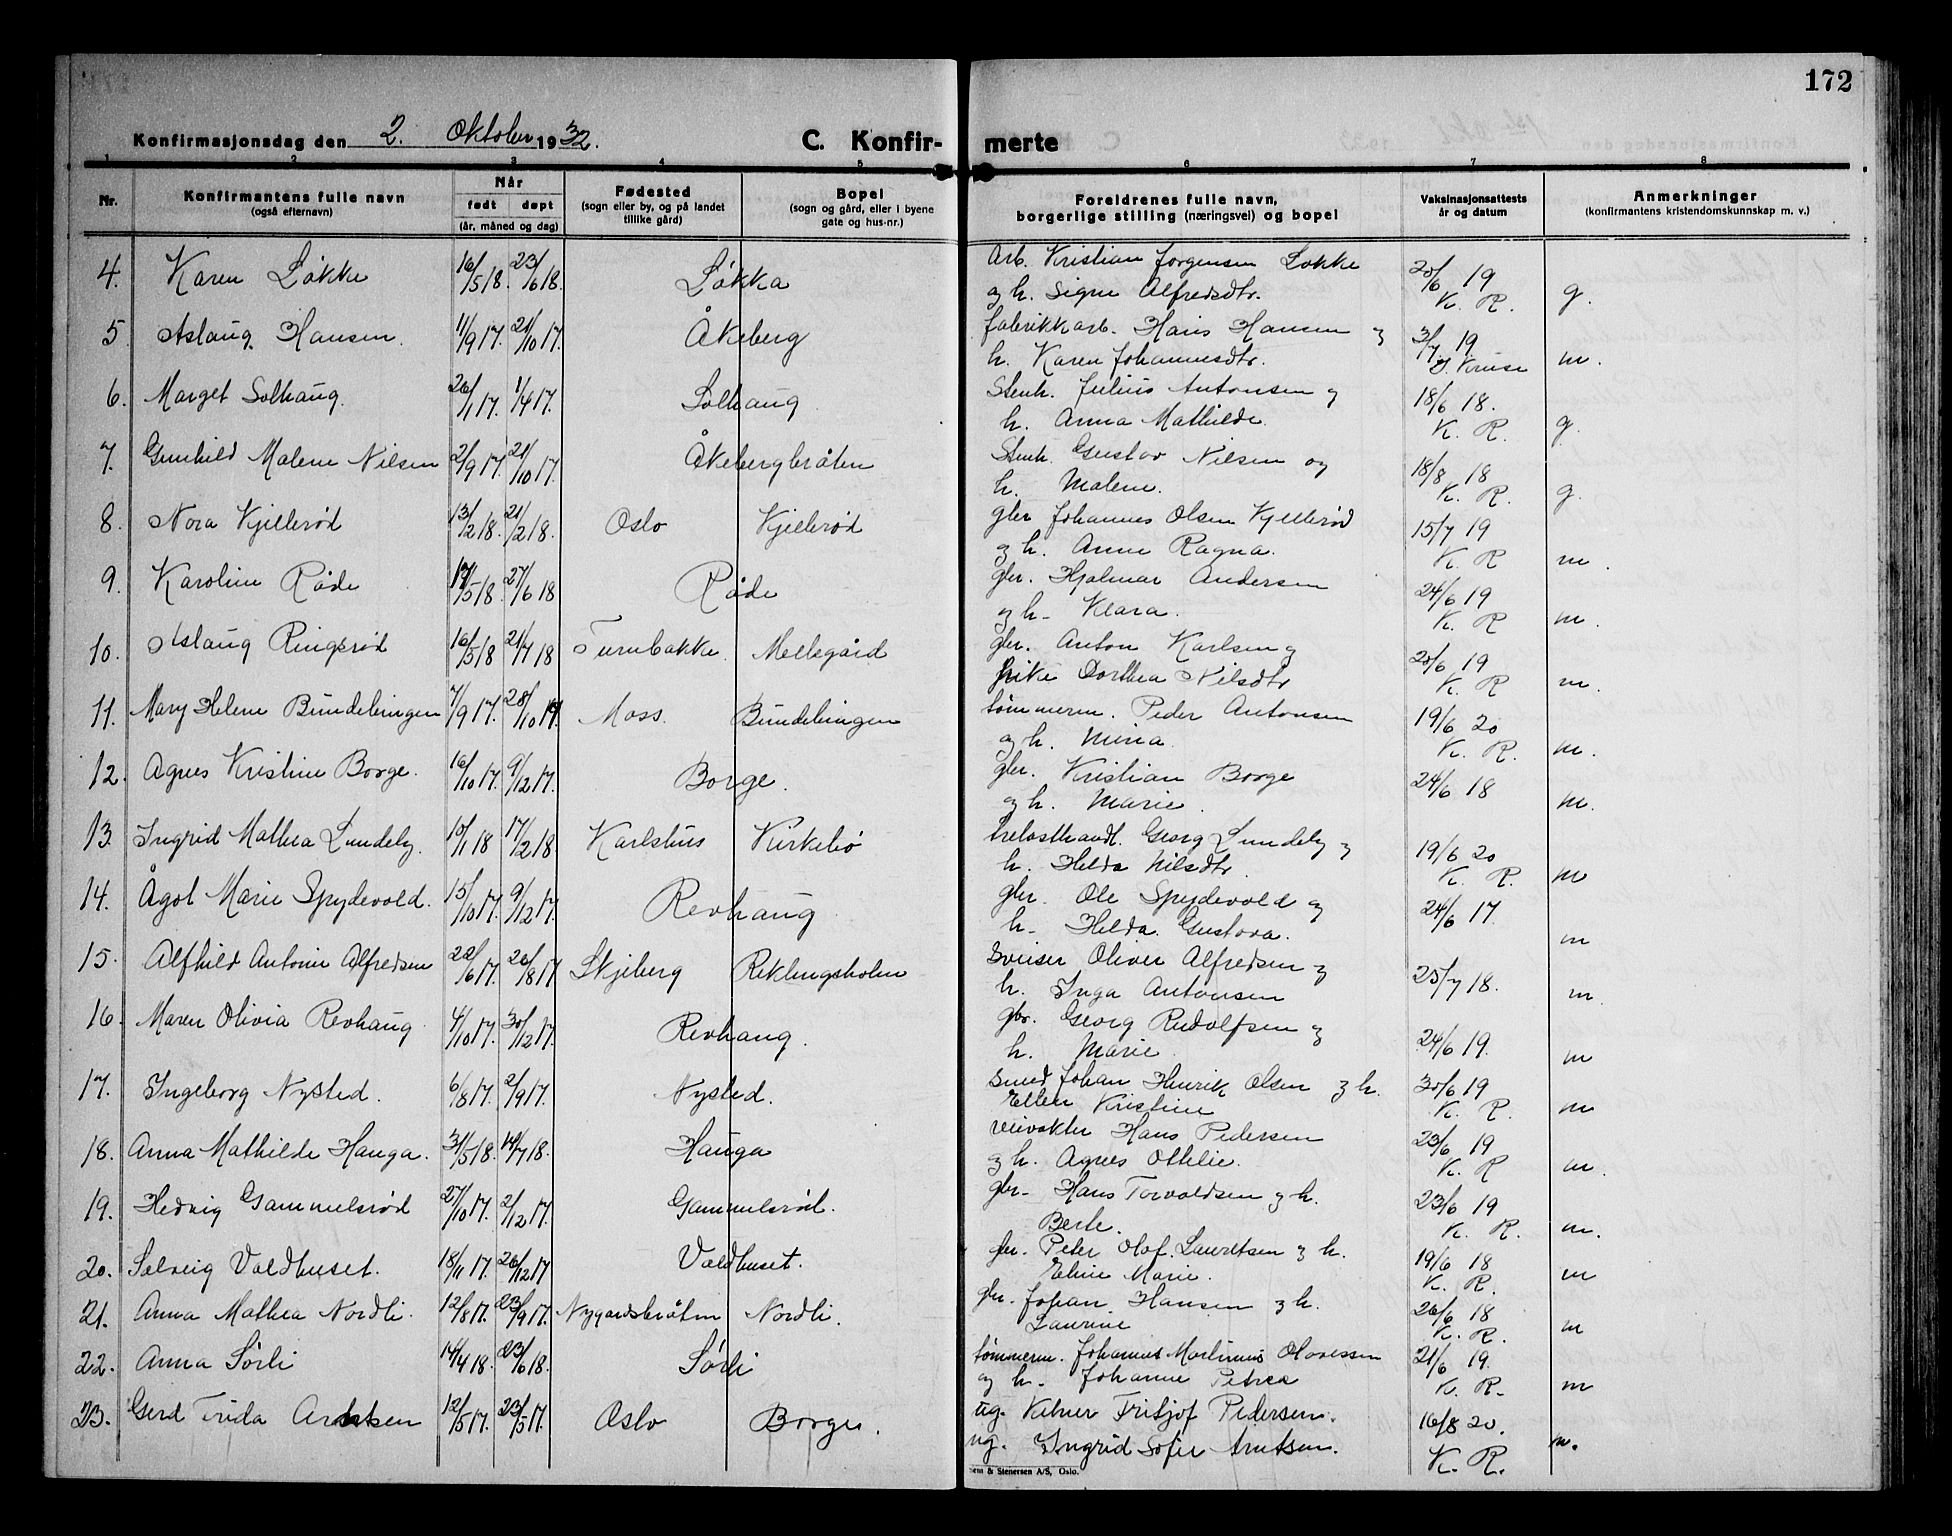 172
Konfirmasjonsdag den 2. Oktober 1932. C. Konfir- merte
1 2 3 4 5 6 7 8
Nr. Konfirmantens fulle navn (også efternavn) Når født døpt (år, måned og dag) Fødested (sogn eller by, og på landet tillike gård) Bopel (sogn og gård, eller i byene gate og hus-nr.) Foreldrenes fulle navn, borgerlige stilling (næringsvei) og bopel Vaksinasjonsattests år og datum Anmerkninger (konfirmantens kristendomskunnskap m. v.)
4. Karen Løkke 16/5 18. 23/6 18. Løkka Arb. Kristian Jørgensen Løkke 20/6 19
og h. Signe Alfredsdtr. K. R. g.
5. Aslaug Hansen. 11/9 17. 21/10 17. Åkeberg fabrikkarb. Hans Hansen og 3/7 19
h. Karen Johannesdtr. J. Kruse m.
6. Marget Solhaug. 26/1 17. 1/4 17. Solhaug Stenh. Julius Antonsen og 18/6 18.
h. Anna Mathilde. K. R. g.
7. Gunhild Malene Nilsen 2/9 17. 21/10 17. Åkebergbråten Stenh. Gustav Nilsen og 18/8 18
h. Malene. K. R. g.
8. Nora Kjillerød 13/2 18. 21/2 18. Oslo Kjillerød gbr Johannes Olsen Kjillerød 15/7 19
og h. Anne Ragna. K. R m.
9. Karoline Råde 17/5 18. 27/6 18 Råde gbr. Hjalmar Andersen 24/6 19
og h. Klara. K. R m.
10. Aslaug Ringsrød 16/5 18 21/7 18 Furnbakke. Mellegård gbr. Anton Karlsen og 20/6 19
Dorthea Nilsdtr K. R m.
11. Mary Helene Bundelingen 7/9 17. 28/10 17. Moss. Bundelingen tømmerm. Peder Antonsen 19/6 20
og h. Mina. K. R. m.
12. Agnes Kristine Borge. 16/10 17. 9/12 17. Borge. gbr. Kristian Borge 24/6 18
og h. Marie. m.
13. Ingrid Mathea Lundeby. 10/1 18 17/2 18. Karlshus Kirkebø trelasthandl. Georg Lundeby og 19/6 20
h. Helda Nilsdtr. K. R. m
14. Ågot Marie Spydevold. 15/10 17. 9/12 17. Revhaug gbr. Ole Spydevold og 24/6 17.
h. Helda Gustava. m
15. Alfhild Antonie Alfredsen 22/6 17. 26/8 17 Skjeberg Reklingsholm Sveiser Oliver Alfredsen og 25/7 18.
h. Inga Antonsen m.
16. Maren Olivia Revhaug. 4/10 17. 30/12 17. Revhaug. gbr. Georg Rudolfsen og 24/6 19.
h. Marie m
17. Ingeborg Nysted. 6/8 17. 2/9 17. Nysted. Smed Johan Henrik Olsen og h. 30/6 19
Ellen Kristine K. R. m
18. Anna Mathilde Hauga. 31/5 18. 14/7 18. Hauga veivokter Hans Pedersen 23/6 19
og h. Agnes Othilie. K. R m.
19. Hedvig Gammelsrød 27/10 17. 2/12 17. Gammelsrød. gbr. Hans Torvaldsen og h. 23/6 19
Berte. K. R. m.
20. Solveig Voldhuset. 18/11 17. 26/12 17 Voldhuset. gbr. Peter Olaf Lauritsen og h. 19/6 18
Eline Marie. K. R. m
21. Anna Mathea Nordli. 12/8 17. 23/9 17. Nygårdsbråten Nordli. gbr. Johan Hansen og h. 26/6 18
Laurine K. R. m
22. Anna Sørli 14/4 18. 23/6 18. Sørli tømmerm. Johannes Martinius Olavessen 21/6 19.
og h. Johanne Petrea K. R. m
23. Gerd Frida Arntsen 12/5 17. 23/5 17. Oslo Borge. ug. Kelner Fritjof Pedersen. 16/8 20.
ug. Ingrid Sofie Arntsen. K. R. m.
& Stenersen A/S, Oslo.